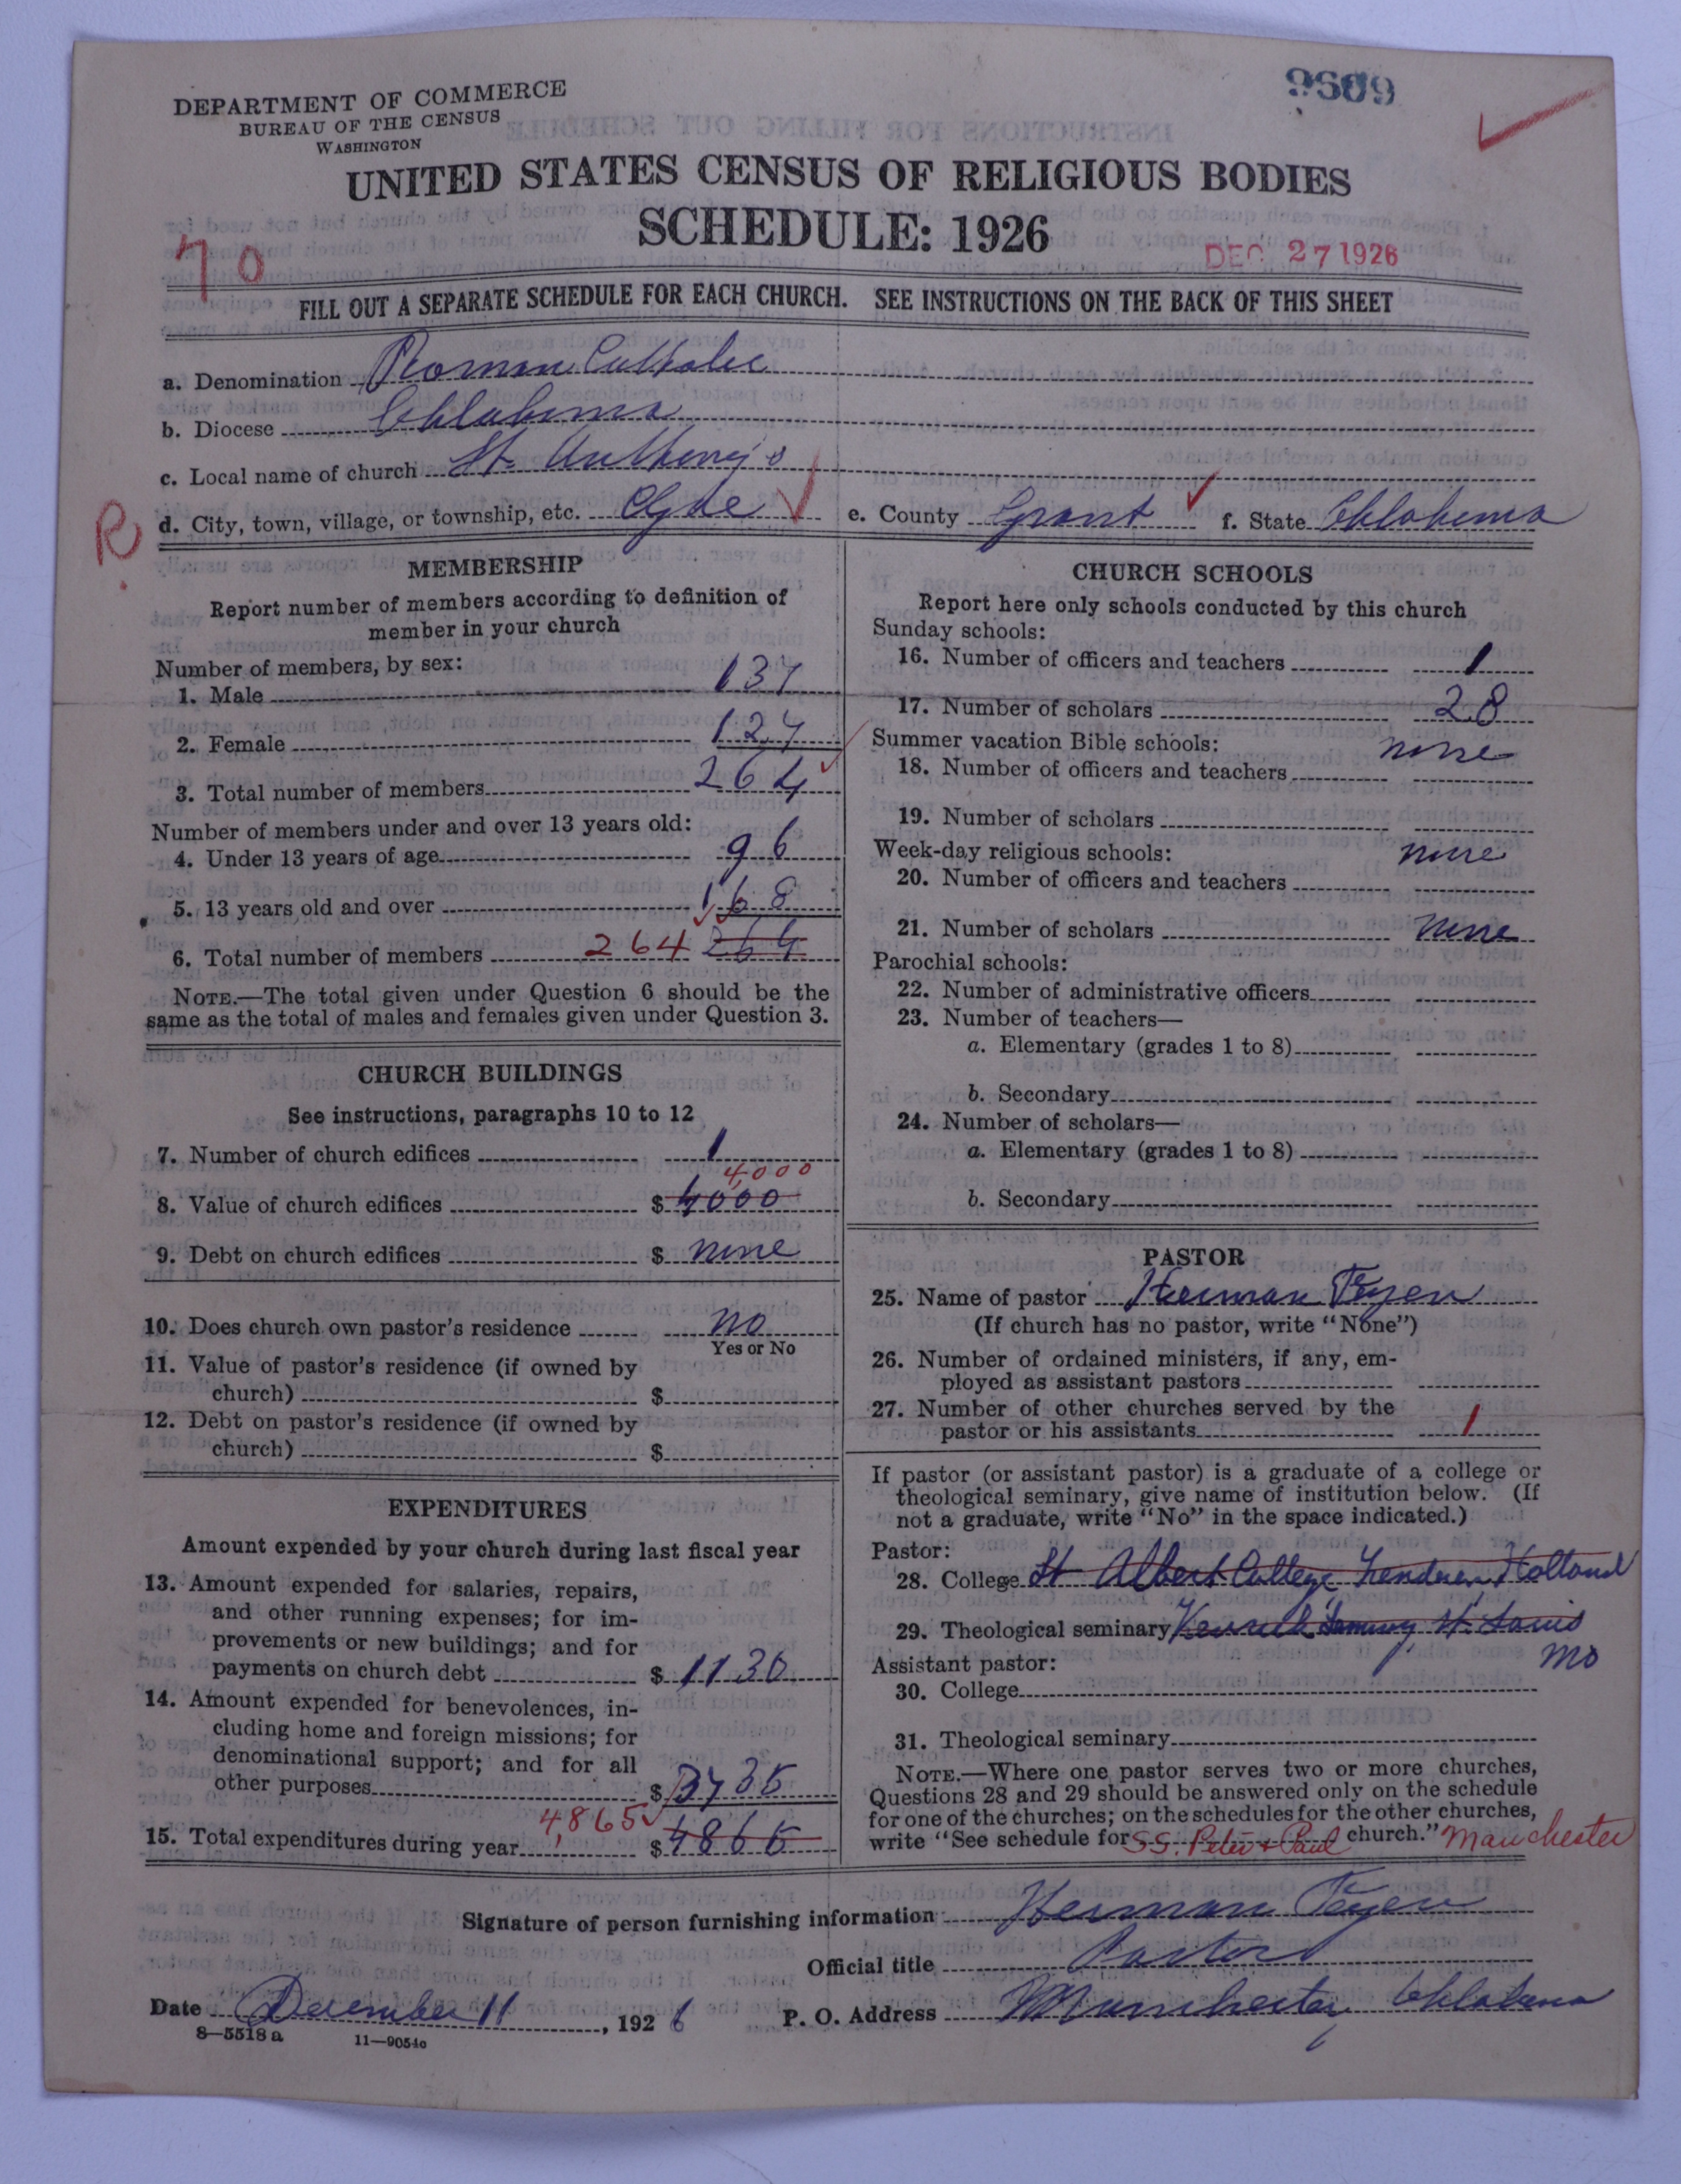 9609
DEPARTMENT OF COMMERCE
BUREAU OF THE CENSUS
WASHINGTON
UNITED STATES CENSUS OF RELIGIOUS BODIES
SCHEDULE: 1926
70
DEC 27 1926
FILL OUT A SEPARATE SCHEDULE FOR EACH CHURCH. SEE INSTRUCTIONS ON THE BACK OF THIS SHEET
a. Denomination Roman Catholic
b. Diocese Oklahoma
c. Local name of church St. Anthony's
R d. City, town, village, or township, etc. Clyde e. County Grant f. State Oklahoma
MEMBERSHIP
Report number of members according to definition of
member in your church
Number of members, by sex:
1. Male 137
2. Female 127
3. Total number of members 264
Number of members under and over 13 years old:
4. Under 13 years of age 96
5. 13 years old and over 168
6. Total number of members 264 264
NOTE.—The total given under Question 6 should be the
same as the total of males and females given under Question 3.
CHURCH BUILDINGS
See instructions, paragraphs 10 to 12
7. Number of church edifices 1
4,000
8. Value of church edifices $ 4000
9. Debt on church edifices $ none
10. Does church own pastor's residence no
Yes or No
11. Value of pastor's residence (if owned by
church) $
12. Debt on pastor's residence (if owned by
church) $
EXPENDITURES
Amount expended by your church during last fiscal year
13. Amount expended for salaries, repairs,
and other running expenses; for im-
provements or new buildings; and for
payments on church debt $ 1130
14. Amount expended for benevolences, in-
cluding home and foreign missions; for
denominational support; and for all
other purposes $ 3735
4,865
15. Total expenditures during year $ 4865
CHURCH SCHOOLS
Report here only schools conducted by this church
Sunday schools:
16. Number of officers and teachers 1
17. Number of scholars 28
Summer vacation Bible schools: none
18. Number of officers and teachers
19. Number of scholars
Week-day religious schools: none
20. Number of officers and teachers
21. Number of scholars none
Parochial schools:
22. Number of administrative officers
23. Number of teachers—
a. Elementary (grades 1 to 8)
b. Secondary
24. Number of scholars—
a. Elementary (grades 1 to 8)
b. Secondary
PASTOR
25. Name of pastor Herman Feyen
(If church has no pastor, write "None")
26. Number of ordained ministers, if any, em-
ployed as assistant pastors
27. Number of other churches served by the
pastor or his assistants 1
If pastor (or assistant pastor) is a graduate of a college or
theological seminary, give name of institution below. (If
not a graduate, write "No" in the space indicated.)
Pastor:
28. College St Albert College Holland
29. Theological seminary Kenrick St. Louis
Mo
Assistant pastor:
30. College
31. Theological seminary
NOTE.—Where one pastor serves two or more churches,
Questions 28 and 29 should be answered only on the schedule
for one of the churches; on the schedules for the other churches,
write "See schedule for SS. Peter & Paul church." Manchester
Signature of person furnishing information Herman Feyen
Official title Pastor
Date December 11, 1926 P. O. Address Manchester Oklahoma
8—5518 a 11—9054c